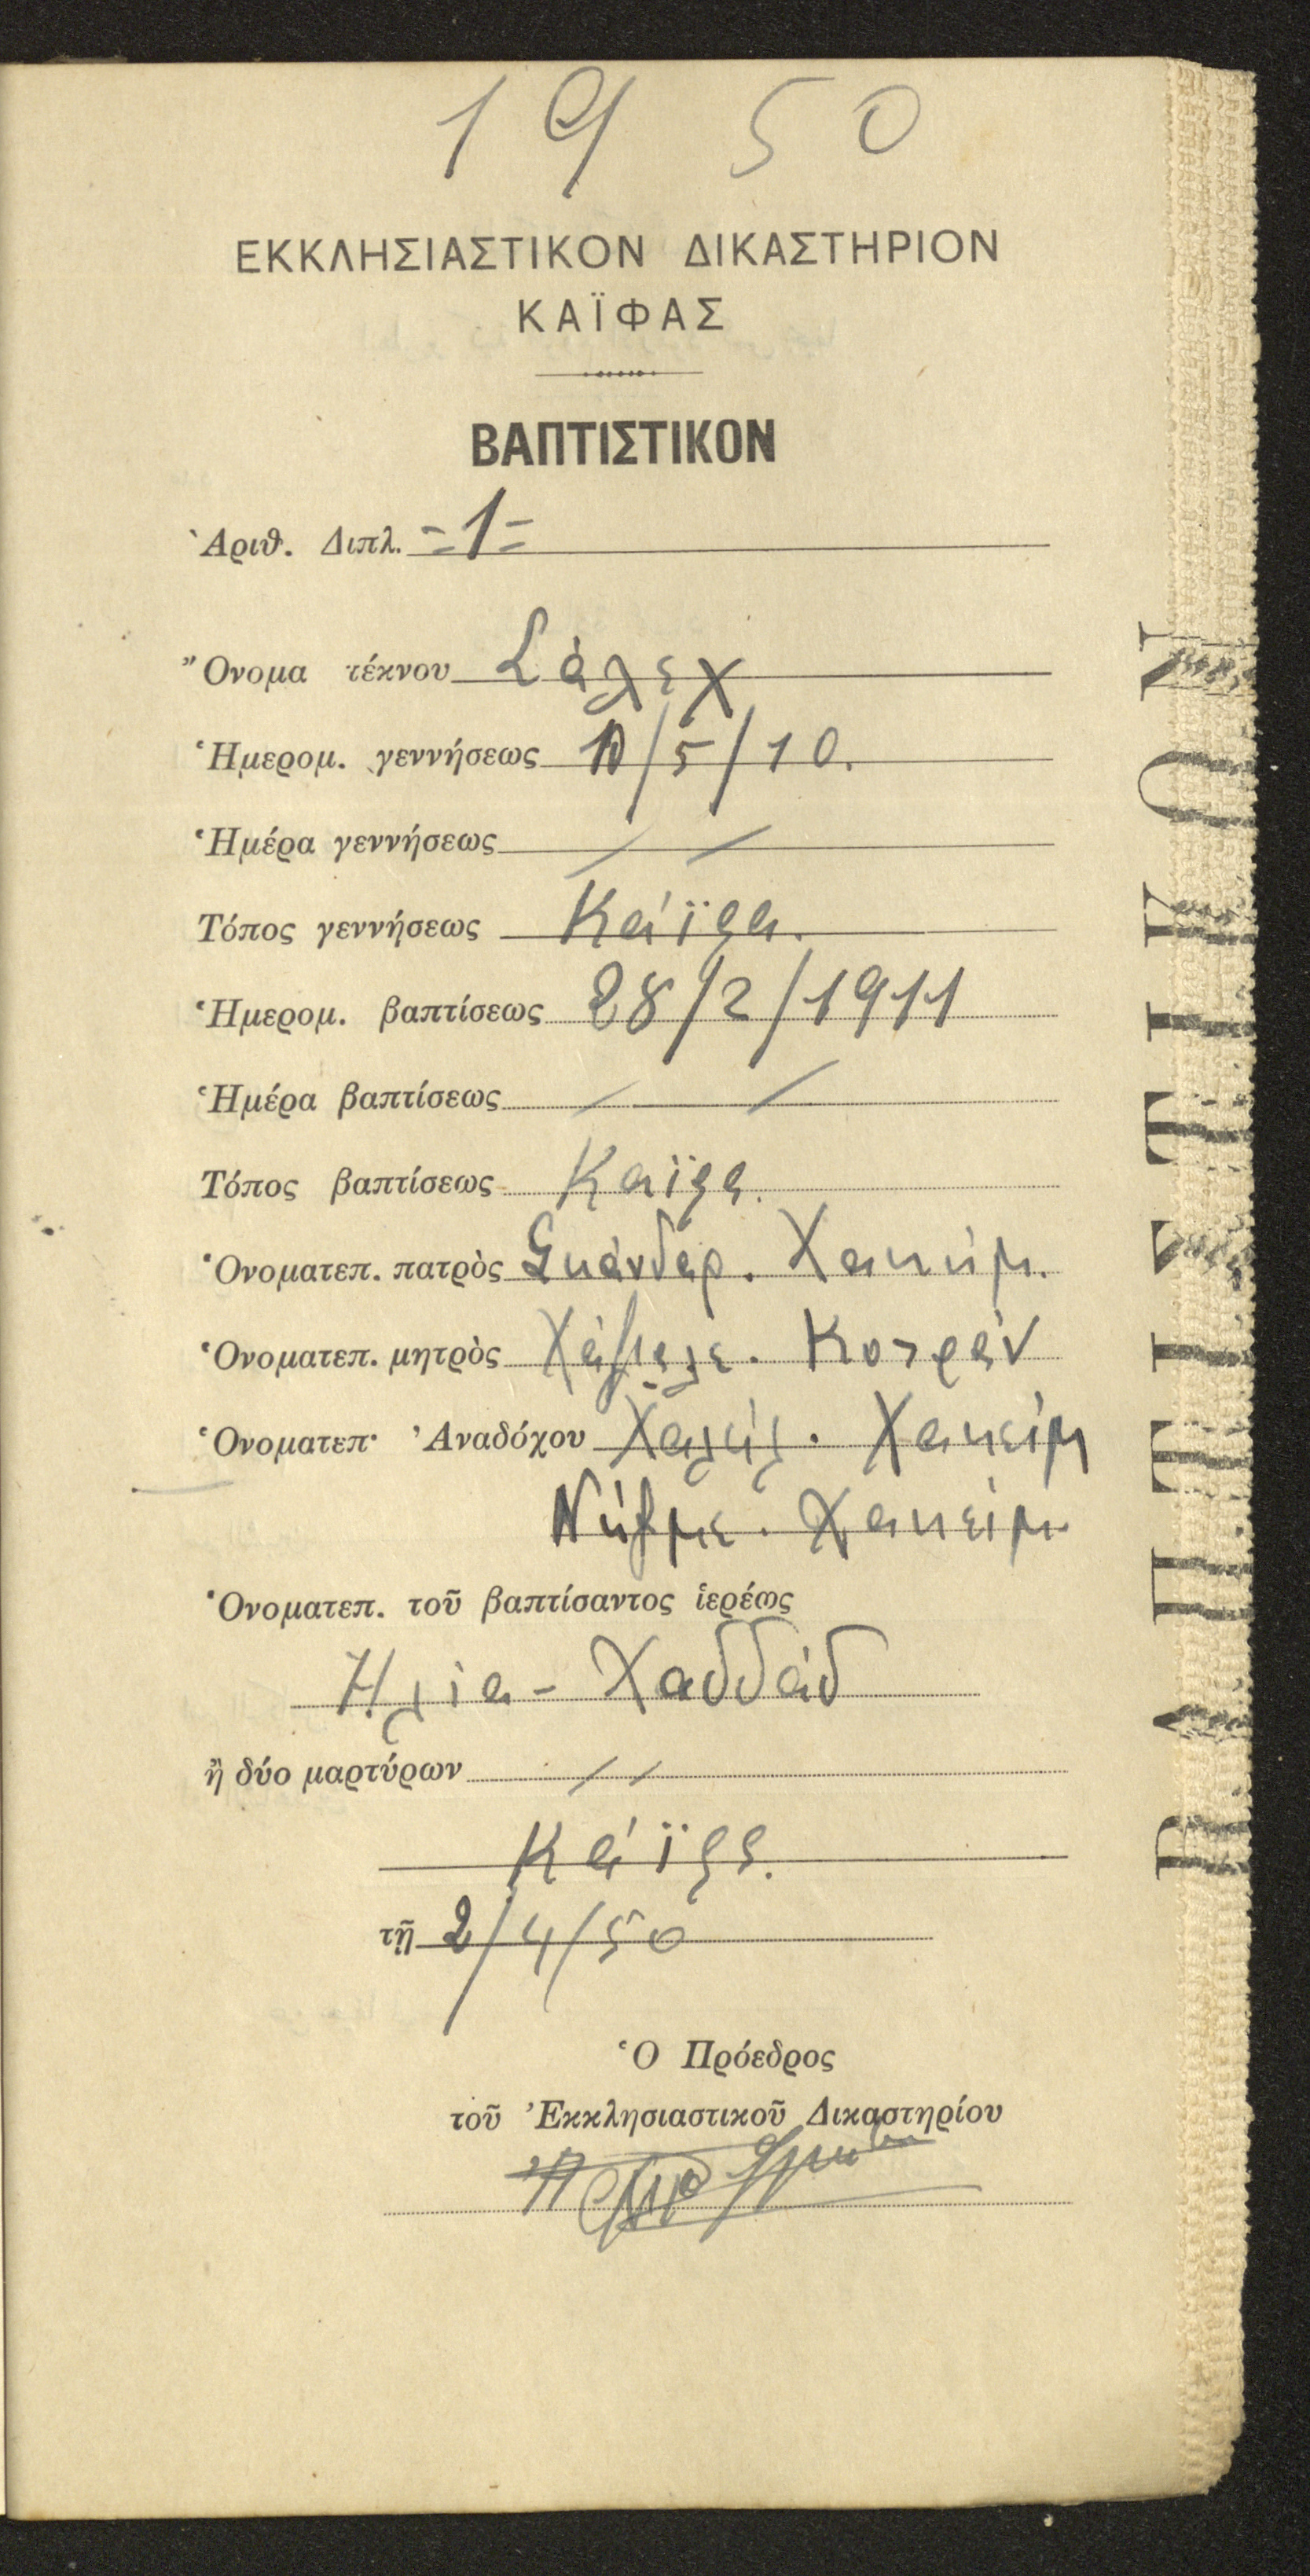 19 50
ΕΚΚΛΗΣΙΑΣΤΙΚΟΝ ΔΙΚΑΣΤΗΡΙΟΝ
ΚΑΪΦΑΣ
ΒΑΠΤΙΣΤΙΚΟΝ
Ἀριθ. Διπλ. =1=
Ὄνομα τέκνου Σάλεχ
Ἡμερομ. γεννήσεως 10/5/10.
Ἡμέρα γεννήσεως
Τόπος γεννήσεως Κάϊφα.
Ἡμερομ. βαπτίσεως 28/2/1911
Ἡμέρα βαπτίσεως
Τόπος βαπτίσεως Καϊφα.
Ὀνοματεπ. πατρὸς Σκάνδαρ. Χακήμ.
Ὀνοματεπ. μητρὸς Κοτράν
Ὀνοματεπ. Ἀναδόχου Χαλήλ. Χακείμ
Νήζμε. Χακείμ.
Ὀνοματεπ. τοῦ βαπτίσαντος ἱερέως
Ηλία - Χαδδάδ
ἢ δύο μαρτύρων
Κάϊφα.
τῇ 2/4/50
Ὁ Πρόεδρος
τοῦ Ἐκκλησιαστικοῦ Δικαστηρίου
ΒΑΠΤΙΣΤΙΚΟΝ